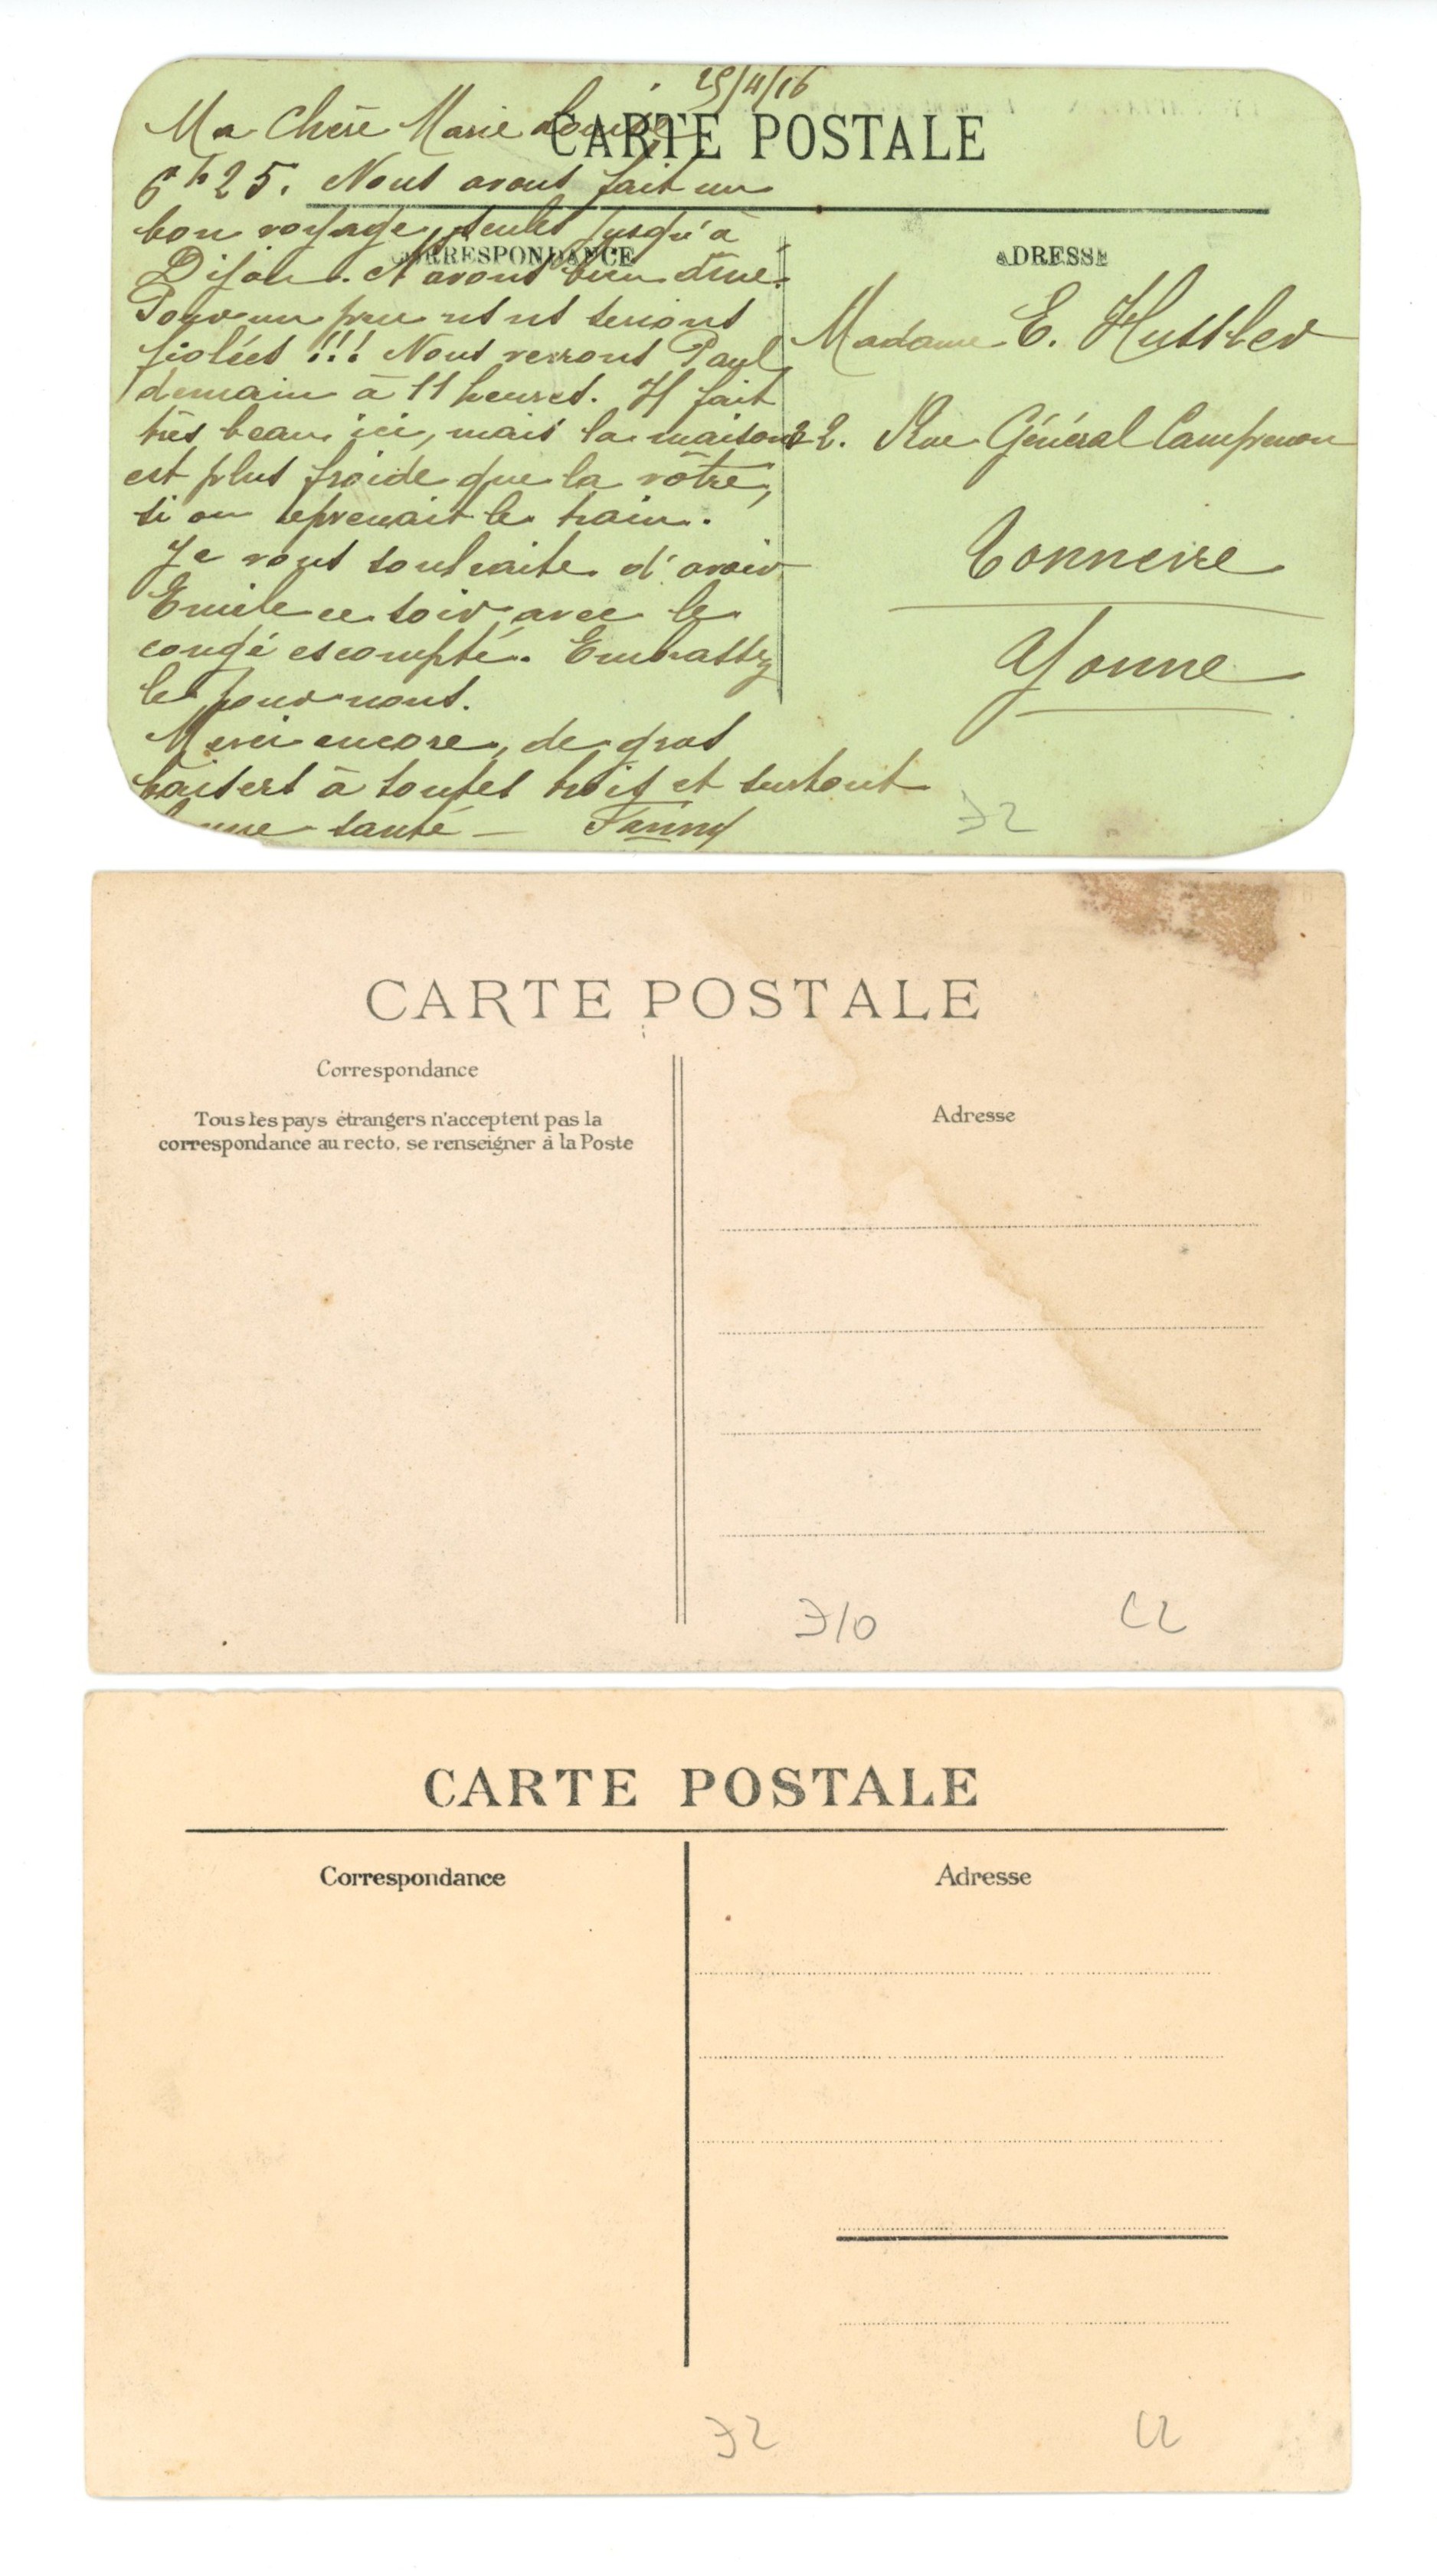 25/4/16
Ma Chère Marie Louise
CARTE POSTALE
6h25. Nous avons fait un
bon voyage, seules jusqu'à
CORRESPONDANCE
Dijon. et avons bien dîné.
Pour un peu ns ns serions
fiolées !!! Nous verrons Paul
demain à 11 heures. Il fait
très beau ici, mais la maison
est plus froide que la vôtre,
si on reprenait le train.
Je vous souhaite d'avoir
Emile ce soir avec le
congé escompté. Embrassez
le pour nous.
Merci encore, de gros
baisers à toutes trois et surtout
bonne santé — Fanny
ADRESSE
Madame E. Hussler
22. Rue Général Campenon
Tonnerre
Yonne
72
CARTE POSTALE
Correspondance
Tous les pays étrangers n'acceptent pas la
correspondance au recto, se renseigner à la Poste
Adresse
CARTE POSTALE
Correspondance
Adresse